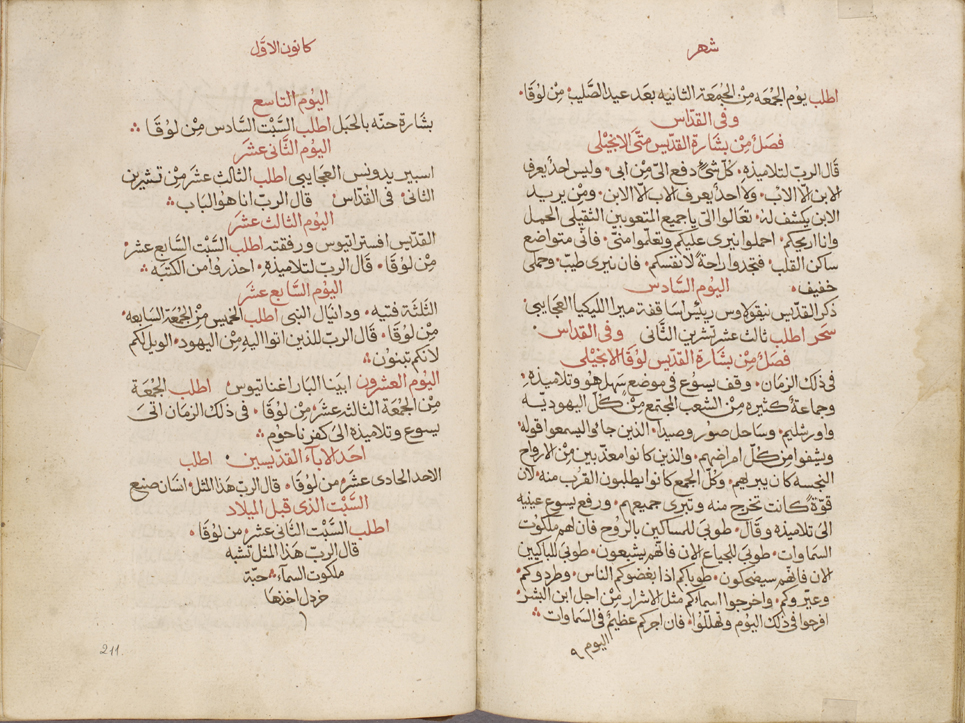 شهر
اطلب يوم الجمعه من الجمعة الثانيه بعد عيد الصليب من لوقا
وفى القداس
فصل من بشارة القديس متى الانجيلى
قال الرب لتلاميذه كل شئ دفع الى من ابى وليس احد يعرف
الابن الا الاب ولا احد يعرف الاب الا الابن ومن يريد
الابن يكشف له تعالوا الى يا جميع المتعوبين الثقيلى الحمل
وانا اريحكم احملوا نيرى عليكم وتعلموا منى فانى متواضع
ساكن القلب فتجدوا راحة لانفسكم فان نيرى طيب وحملى
خفيف اليوم السادس
ذكر القديس نيقولاوس رييس اساقفة ميرا الليكيا العجايبى
سحر اطلب ثالث عشر تشرين الثانى وفى القداس
فصل من بشارة القديس لوقا الانجيلى
فى ذلك الزمان وقف يسوع فى موضع سهل هو وتلاميذه
وجماعة كثيره من الشعب المجتمع من كل اليهوديه
واورشليم وساحل صور وصيدا الذين جاءوا ليسمعوا قوله
ويشفوا من كل امراضهم والذين كانوا معذبين من الارواح
النجسه كان يبريهم وكل الجمع كانوا يطلبون القرب منه لان
قوة كانت تخرج منه وتبرى جميعهم ورفع يسوع عينيه
الى تلاميذه وقال طوبى للمساكين بالروح فان لهم ملكوت
السماوات طوبى للجياع الان فانهم يشبعون طوبى للباكيين
الان فانهم سيضحكون طوباكم اذا بغضوكم الناس وطردوكم
وعيروكم واخرجوا اسماكم مثل الاشرار من اجل ابن البشر
افرحوا فى ذلك اليوم وتهللوا فان اجركم عظيم فى السماوات
اليوم ٩
كانون الاول
اليوم التاسع
بشارة حنه بالحبل اطلب السبت السادس من لوقا
اليوم الثانى عشر
اسبيريدونس العجايبى اطلب الثالث عشر من تشرين
الثانى فى القداس قال الرب انا هو الباب
اليوم الثالث عشر
القديس افستراتيوس ورفقته اطلب السبت السابع عشر
من لوقا قال الرب لتلاميذه احذروا من الكتبه
اليوم السابع عشر
الثلثة فتيه ودانيال النبى اطلب الخميس من الجمعة السابعه
من لوقا قال الرب للذين اتوا اليه من اليهود الويل لكم
لانكم تبنون
اليوم العشرون ابينا البار اغناتيوس اطلب الجمعة
من الجمعة الثالثه عشر من لوقا فى ذلك الزمان اتى
يسوع وتلاميذه الى كفرناحوم
احد الاباء القديسين اطلب
الاحد الحادى عشر من لوقا قال الرب هذا المثل انسان صنع
السبت الذى قبل الميلاد
اطلب السبت الثانى عشر من لوقا
قال الرب هذا المثل تشبه
ملكوت السماء حبة
خردل اخذها
211.